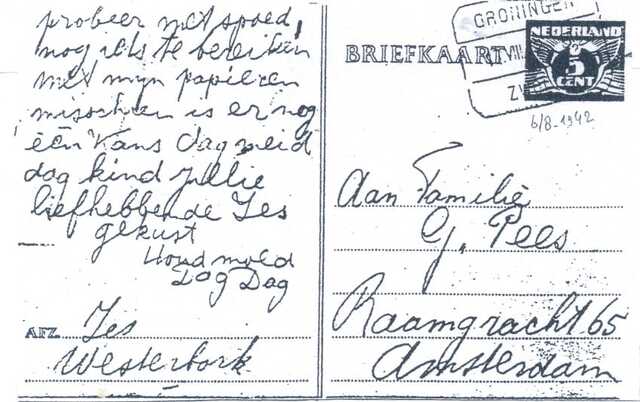 probeer met spoed
nog iets te bereiken
met mijn papieren
misschien is er nog
één kans dag meid
dag kind jullie
liefhebbende Jes
gekust
Houd moed
Dag Dag
AFZ. Jes
Westerbork
BRIEFKAART
GRONINGEN
VIII
ZW
NEDERLAND
5
CENT
6/8-1942
Aan Familie
G. Pees
Raamgracht 65
Amsterdam